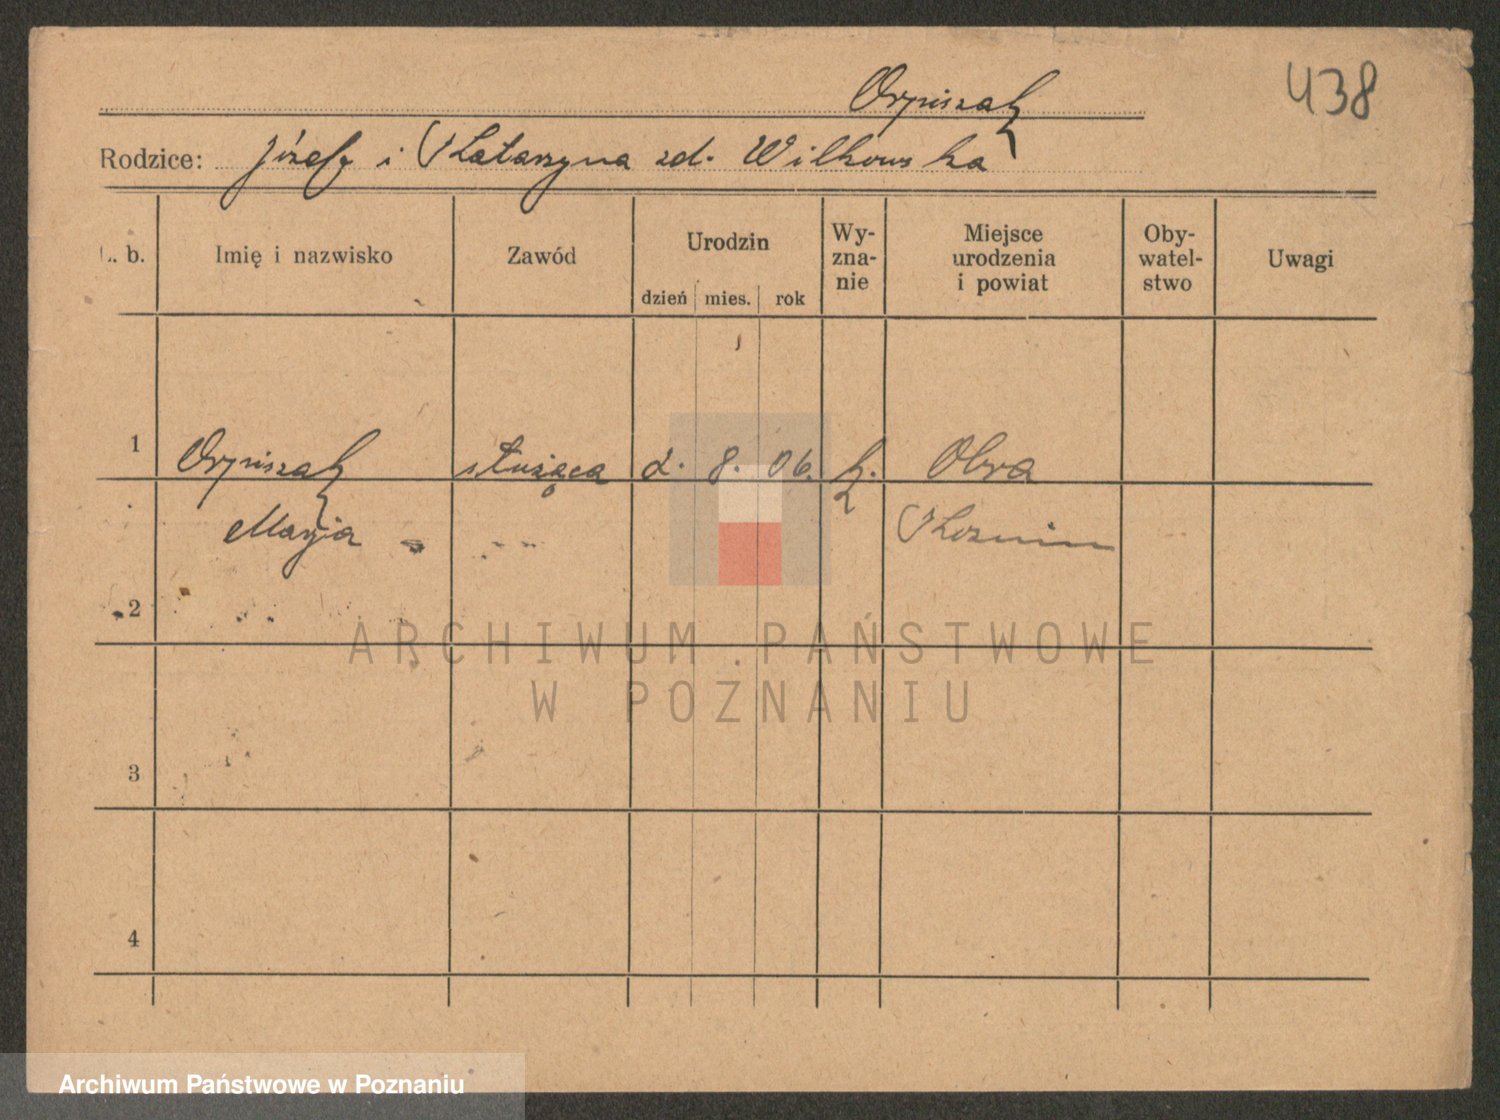 438
Orpiszak
Rodzice: Józef i Katarzyna zd. Wilkowska
L. b.
Imię i nazwisko
Zawód
Urodzin
dzień mies. rok
Wy-
zna-
nie
Miejsce
urodzenia
i powiat
Oby-
watel-
stwo
Uwagi
1 Orpiszak służąca 2. 8. 06. k. Obra
Marja Kozmin
2
3
4
ARCHIWUM PAŃSTWOWE
W POZNANIU
Archiwum Państwowe w Poznaniu